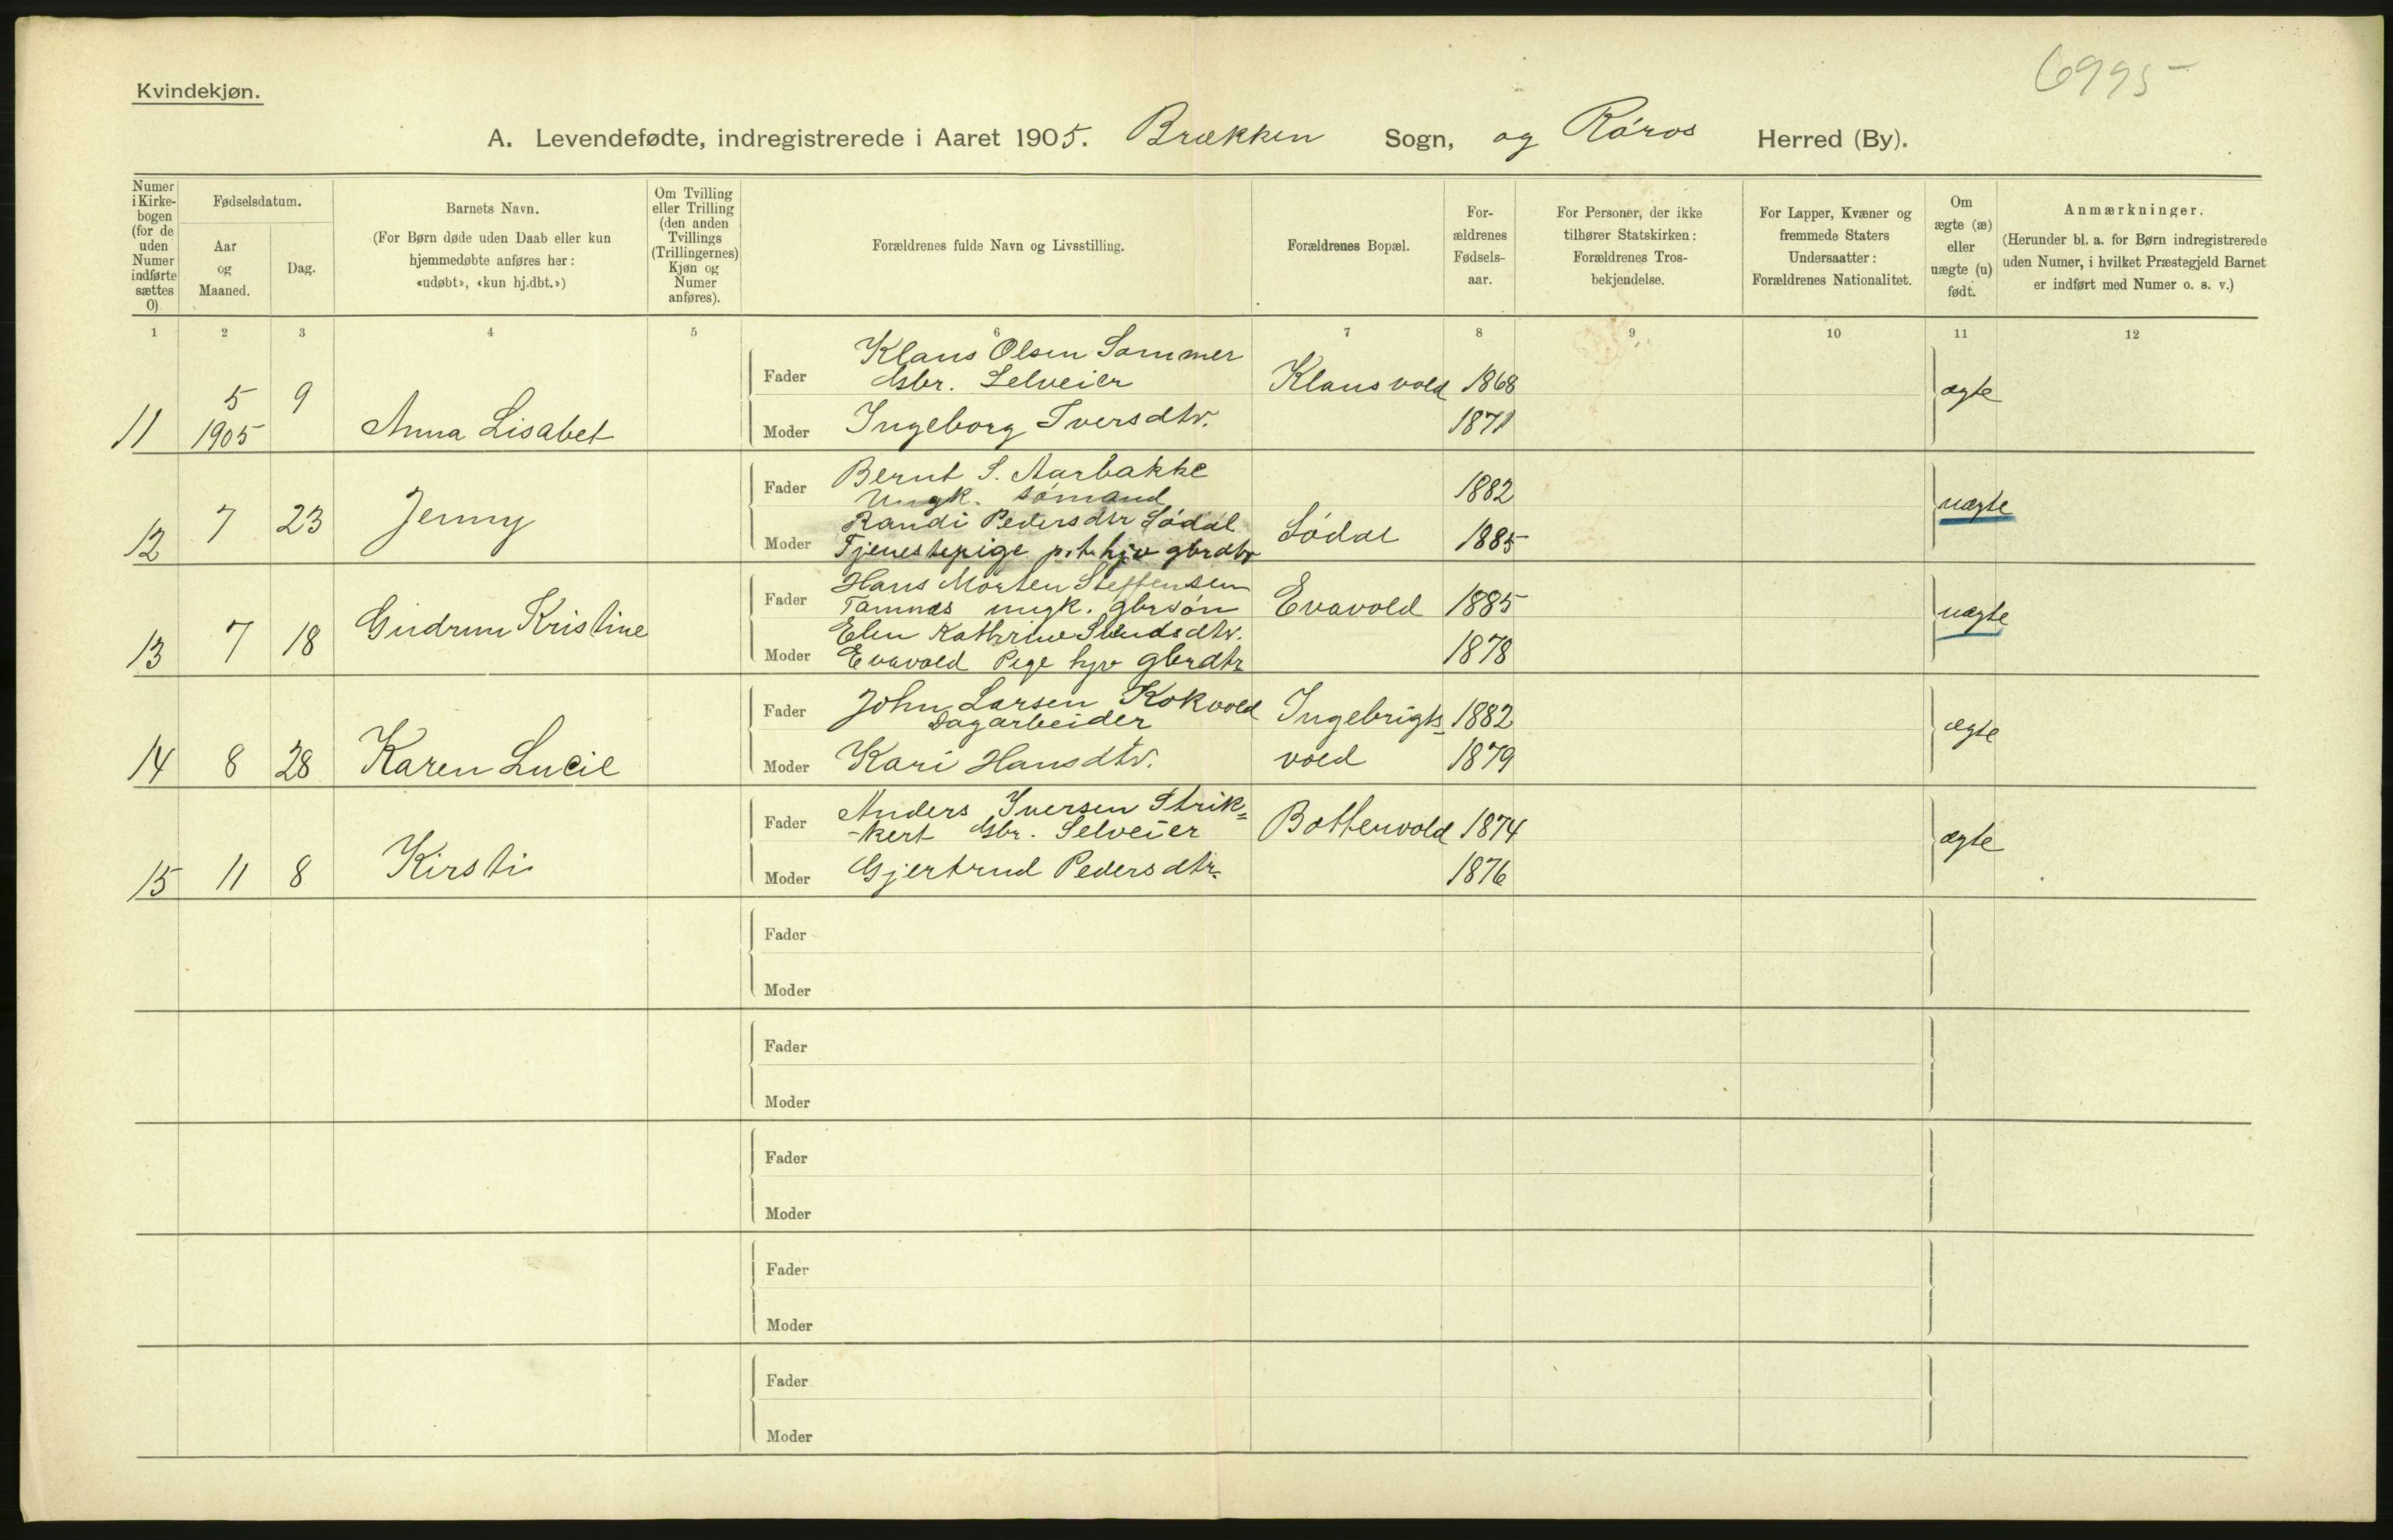 6995
Kvindekjøn.
A. Levendefødte, indregistrerede i Aaret 1905. Brækken Sogn, og Røros Herred (By).
Numer i Kirke-bogen (for de uden Numer indførte sættes 0)
Fødselsdatum.
Aar og Maaned.
Dag.
Barnets Navn.
(For Børn døde uden Daab eller kun hjemmedøbte anføres her: «udøbt», «kun hj.dbt.»)
Om Tvilling eller Trilling (den anden Tvillings (Trillingernes) Kjøn og Numer anføres).
Forældrenes fulde Navn og Livsstilling.
Forældrenes Bopæl.
For-ældrenes Fødsels-aar.
For Personer, der ikke tilhører Statskirken: Forældrenes Tros-bekjendelse.
For Lapper, Kvæner og fremmede Staters Undersaatter: Forældrenes Nationalitet.
Om ægte (æ) eller uægte (u) født.
Anmærkninger.
(Herunder bl. a. for Børn indregistrerede uden Numer, i hvilket Præstegjeld Barnet er indført med Numer o. s. v.)
1 2 3 4 5 6 7 8 9 10 11 12
11 5 1905 9 Anna Lisabet
Fader Klaus Olsen Sommer
Gbr. Selveier Klausvold 1868 ægte
Moder Ingeborg Iversdtr. 1871
12 7 23 Jenny
Fader Bernt S. Aarbakke 1882
Ungk. sømand
Moder Randi Pedersdtr Sødal Sødal 1885 uægte
Tjenestepige p.t. hjv gbrdtr
13 7 18 Gudrun Kristine
Fader Hans Morten Steffensen
Tamnæs ungk. gbrsøn Evavold 1885 uægte
Moder Elen Kathrine Svendsdtr.
Evavold Pige hjv gbrdtr 1878
14 8 28 Karen Lucie
Fader John Larsen Kokvold Ingebrigts- 1882 ægte
Dagarbeider
Moder Kari Hansdtr. vold 1879
15 11 8 Kirsti
Fader Anders Iversen Strik=
-kert Gbr. Selveier Bottenvold 1874 ægte
Moder Gjertrud Pedersdtr. 1876
Fader
Moder
Fader
Moder
Fader
Moder
Fader
Moder
Fader
Moder